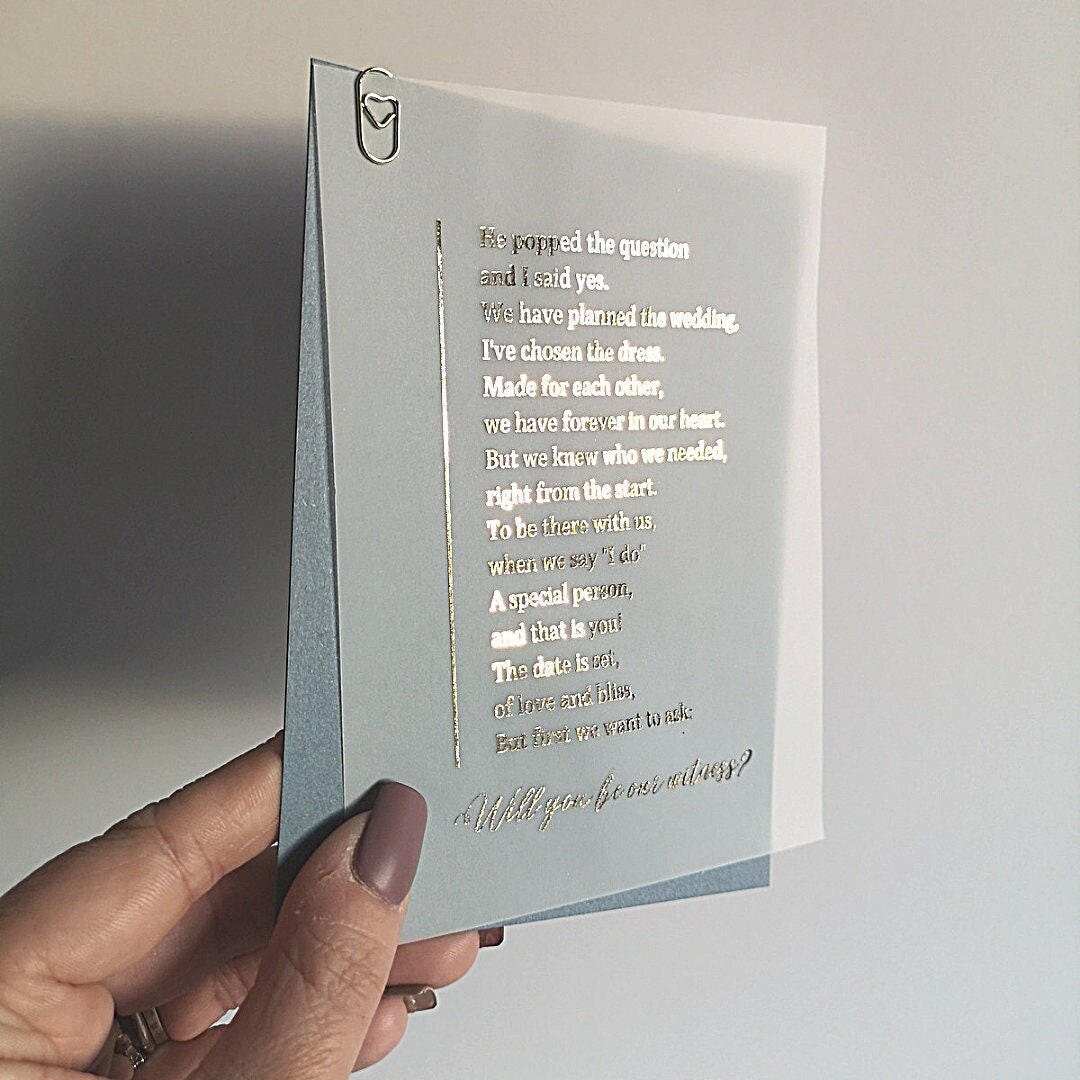 He popped the question
and I said yes.
We have planned the wedding,
I've chosen the dress.
Made for each other,
we have forever in our heart.
But we knew who we needed,
right from the start.
To be there with us,
when we say "I do"
A special person,
and that is you!
The date is set,
of love and bliss,
But first we want to ask:
Will you be our witness?